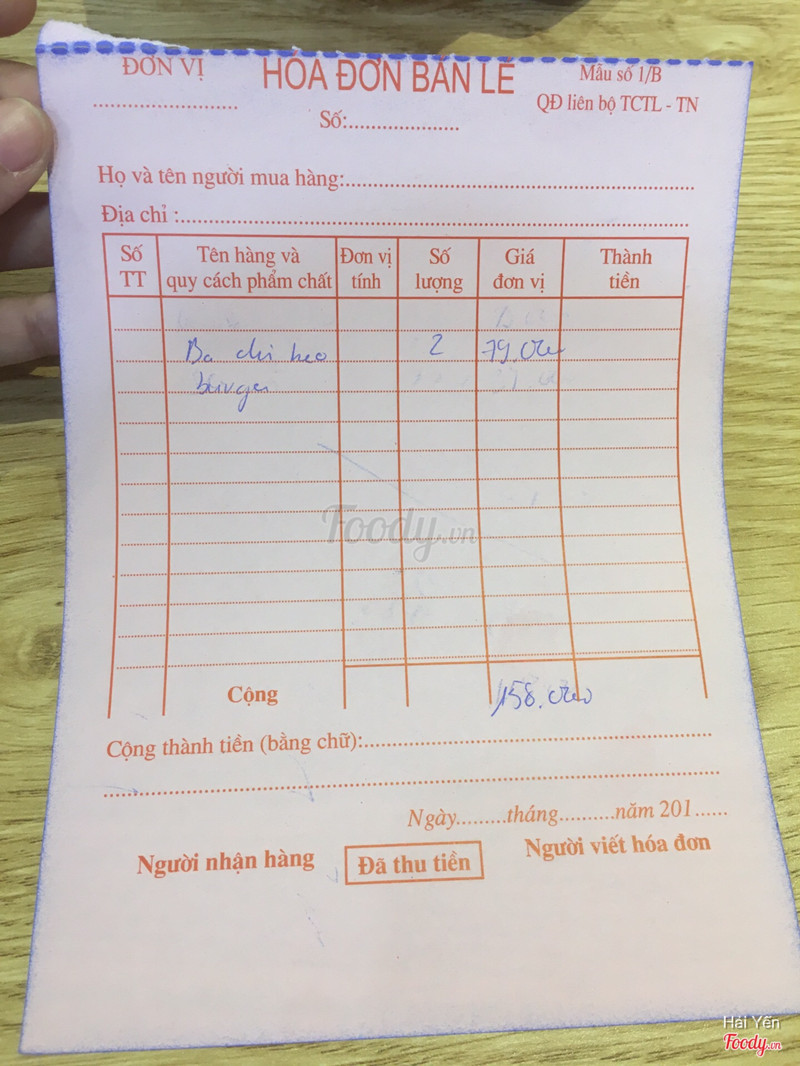 ĐƠN VỊ
HÓA ĐƠN BÁN LẺ
Mẫu số 1/B
QĐ liên bộ TCTL - TN
....................
Số:....................
Họ và tên người mua hàng:....................
Địa chỉ :....................
Số TT
Tên hàng và quy cách phẩm chất
Đơn vị tính
Số lượng
Giá đơn vị
Thành tiền
Ba chỉ heo 2 79.000
burger
Cộng 158.000
Cộng thành tiền (bằng chữ):....................
....................
Ngày.........tháng..........năm 201......
Người nhận hàng
Đã thu tiền
Người viết hóa đơn
Foody.vn
Hải Yến
Foody.vn